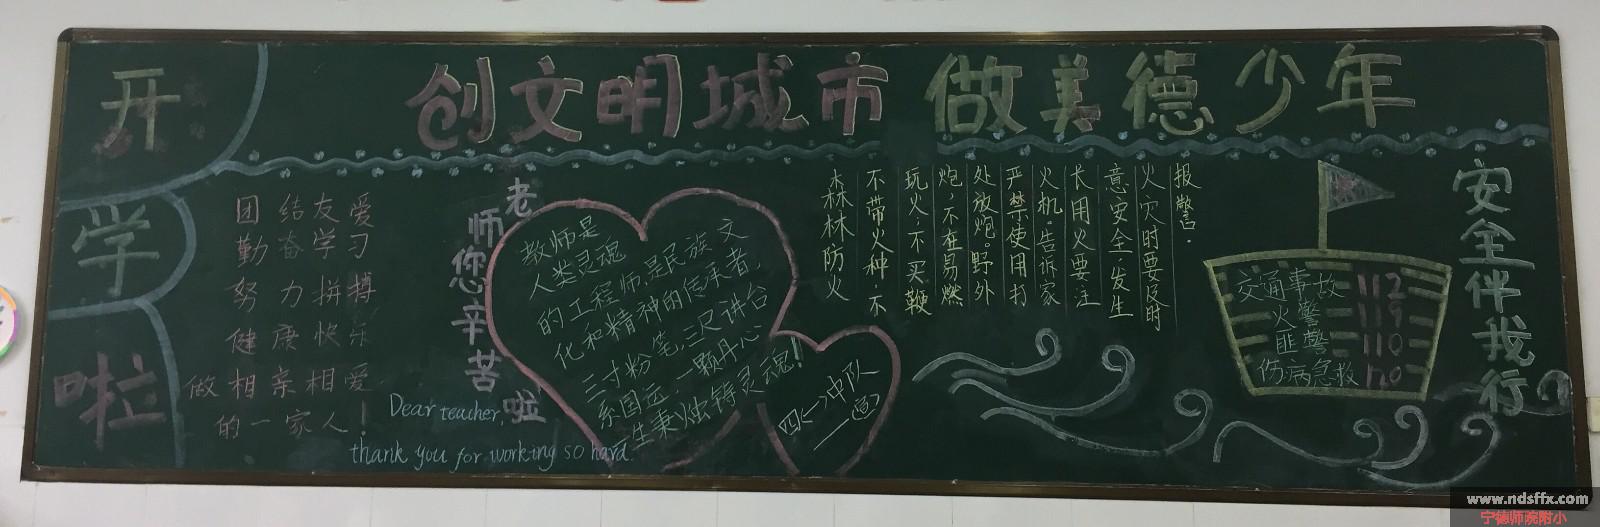 创文明城市 做美德少年
开
学
啦
团结友爱
勤奋学习
努力拼搏
健康快乐
做相亲相爱
的一家人！
老师您辛苦啦
Dear teacher,
thank you for working so hard.
教师是
人类灵魂
的工程师,是民族文
化和精神的传承者,
三寸粉笔,三尺讲台
系国运;一颗丹心
一生秉烛铸灵魂！
四(一)中队
森林防火
不带火种,不
玩火,不买鞭
炮,不在易燃
处放炮。野外
严禁使用打
火机,告诉家
长用火要注
意安全,发生
火灾时要及时
报警.
交通事故 112
火警 119
匪警 110
伤病急救 120
安全伴我行
www.ndsffx.com
宁德师院附小